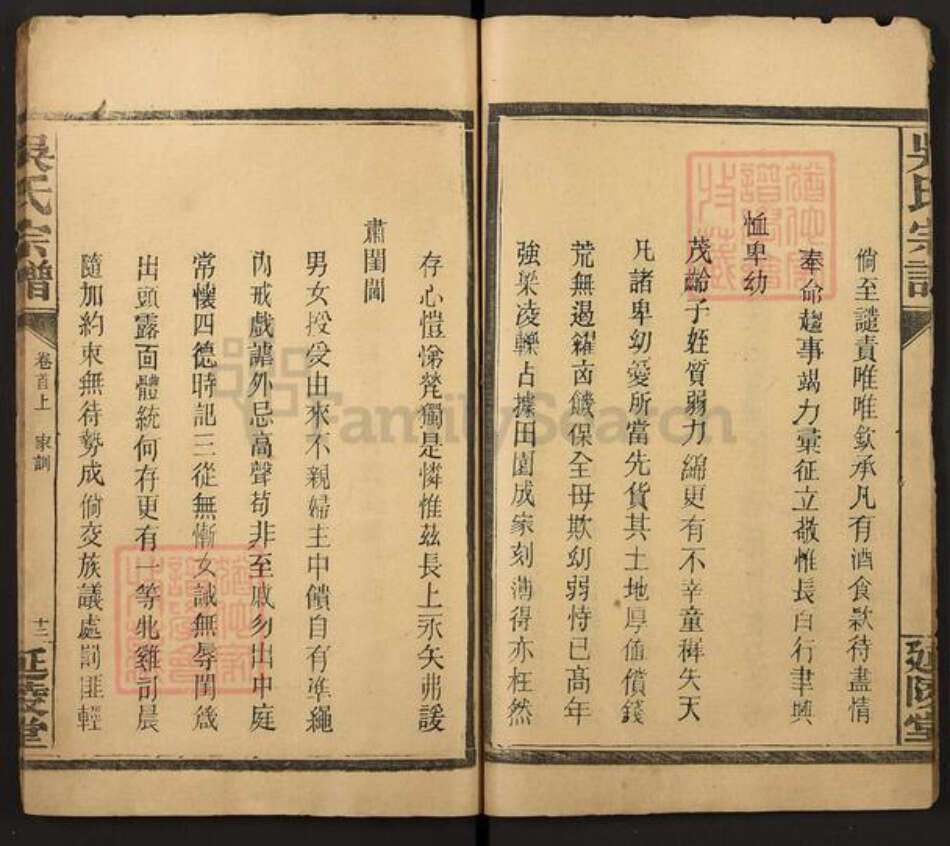 吳氏宗譜
延陵堂
倘至譴責唯唯欽承凡有酒食款待盡情
奉命趨事竭力彙征立敬惟長百行聿興
恤卑幼
茂齡子姪質弱力綿更有不幸童穉失天
凡諸卑幼憂所當先貨其土地厚值償錢
荒無遏糴卤饑保全毋欺幼弱恃已高年
強梁凌轢占據田園成家刻薄得亦枉然
存心愷悌煢獨是憐惟茲長上永矢弗諼
肅閨閫
男女授受由來不親婦主中饋自有準繩
內戒戲謔外忌高聲苟非至戚勿出中庭
常懷四德時記三從無慚女誡無辱閨箴
出頭露面體統何存更有一等牝雞司晨
隨加約束無待勢成倘交族議處罰匪輕
吳氏宗譜
卷首上 家訓
十二
延陵堂
FamilySearch